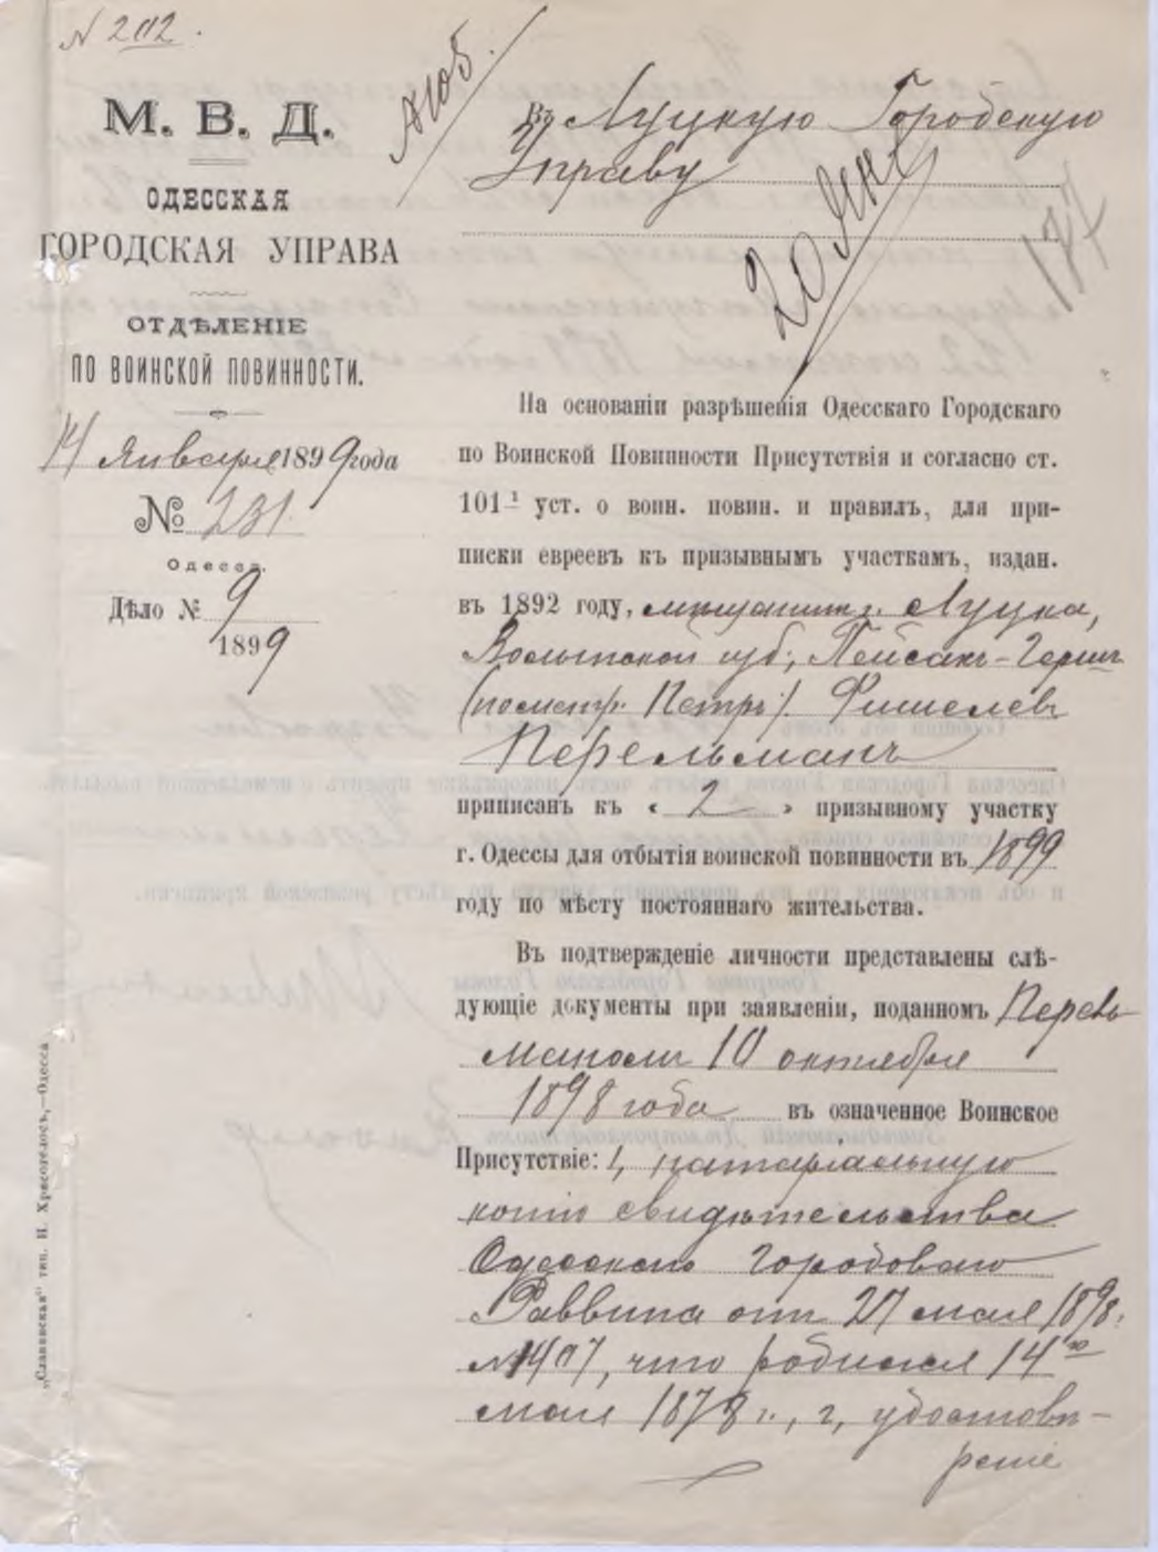 N 202.
М. В. Д.
ОДЕССКАЯ
ГОРОДСКАЯ УПРАВА
ОТДѢЛЕНІЕ
ПО ВОИНСКОЙ ПОВИННОСТИ.
14 Января 1899 года
№ 231
Одесса.
Дѣло № 9
1899
Въ Луцкую Городскую
Управу
20 Янв
187
На основаніи разрѣшенія Одесскаго Городскаго
по Воинской Повинности Присутствія и согласно ст.
101¹ уст. о воин. повин. и правилъ, для при-
писки евреевъ къ призывнымъ участкамъ, издан.
въ 1892 году, мѣщанинъ г. Луцка,
Волынской губ., Пейсахъ-Герш
(по метр. Петръ) Фишелевъ
Перельманъ
приписанъ къ « 2 » призывному участку
г. Одессы для отбытія воинской повинности въ 1899
году по мѣсту постояннаго жительства.
Въ подтвержденіе личности представлены слѣ-
дующіе документы при заявленіи, поданномъ Перель-
маномъ 10 октября
1898 года въ означенное Воинское
Присутствіе: 1, нотаріальную
копію свидѣтельства
Одесскаго городоваго
Раввина отъ 27 мая 1898 г.
№ 1407, что родился 14го
мая 1878 г., 2, удостовѣ-
реніе
„Славянская“ тип. Н. Хрисогелосъ,—Одесса